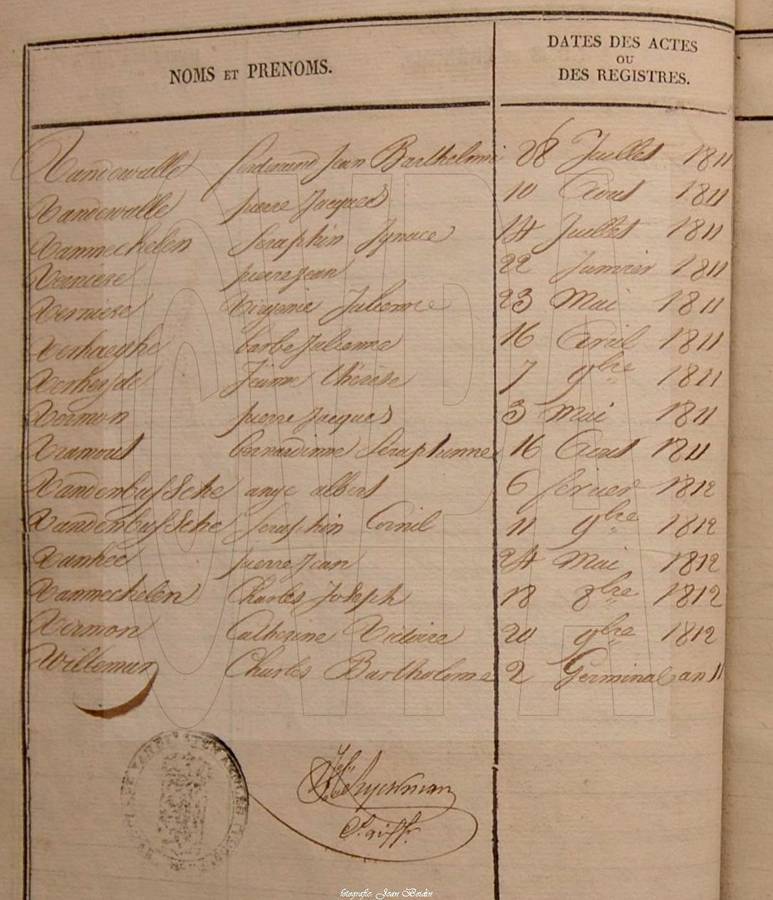 NOMS ET PRENOMS.
DATES DES ACTES
OU
DES REGISTRES.
Vandewalle ferdinand Jean Barthelomi 28 Juillet 1811
Vandewalle pierre Jacques 10 Aout 1811
Vanmechelen Seraphin Ignace 14 Juillet 1811
pierre Jean 22 Janvier 1811
Verniere Julienne 23 Mai 1811
Verhaeghe barbe Julienne 16 Avril 1811
Verheyde Jeanne thérèse 7 9bre 1811
Vermon pierre Jacques 3 Mai 1811
Vramout bernardinne Seraphinne 16 Aout 1811
Vandenbussche ange albert 6 fevrier 1812
Vandenbussche Seraphin Cornil 11 9bre 1812
Vanhee pierre Jean 24 Mai 1812
Vanmechelen Charles Joseph 18 8bre 1812
Vermon Catherine Victoire 20 9bre 1812
Willeman Charles Bartholome 2 Germinal an 11
Griffr.
fotografie: Jean Bordin